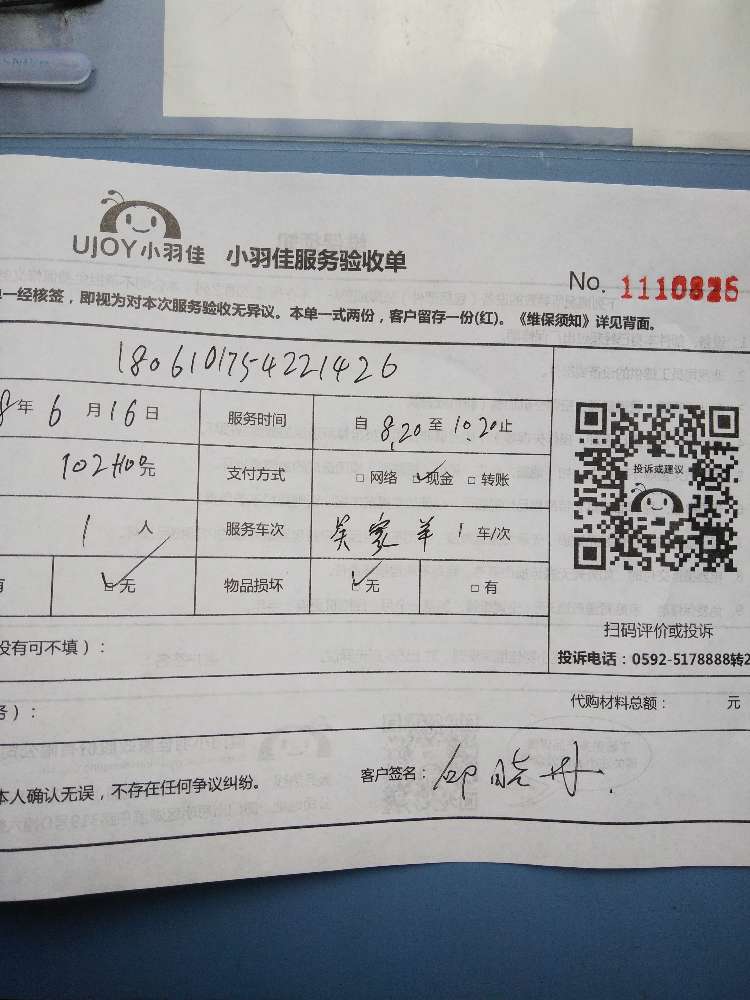 UJOY小羽佳 小羽佳服务验收单
No. 1110826
一经核签，即视为对本次服务验收无异议。本单一式两份，客户留存一份(红)。《维保须知》详见背面。
180610175422142​6
8年6月16日 服务时间 自8.20至10.20止
元 支付方式 □网络 ☑现金 □转账
1人 服务车次 吴家羊 1车/次
有 ☑无 物品损坏 ☑无 □有
投诉或建议
扫码评价或投诉
没有可不填）：
投诉电话：0592-5178888转2
代购材料总额： 元
务）：
本人确认无误，不存在任何争议纠纷。 客户签名：邱晓丹